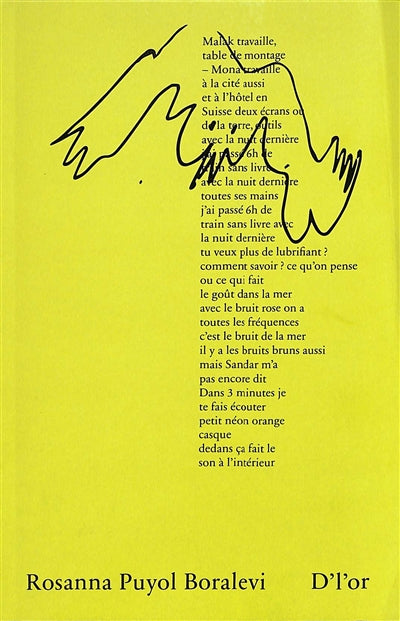 Malak travaille,
table de montage
– Mona travaille
à la cité aussi
et à l'hôtel en
Suisse deux écrans ou
de la terre, outils
avec la nuit dernière
j'ai passé 6h de
train sans livre
avec la nuit dernière
toutes ses mains
j'ai passé 6h de
train sans livre avec
la nuit dernière
tu veux plus de lubrifiant ?
comment savoir ? ce qu'on pense
ou ce qui fait
le goût dans la mer
avec le bruit rose on a
toutes les fréquences
c'est le bruit de la mer
il y a les bruits bruns aussi
mais Sandar m'a
pas encore dit
Dans 3 minutes je
te fais écouter
petit néon orange
casque
dedans ça fait le
son à l'intérieur
Rosanna Puyol Boralevi D'l'or